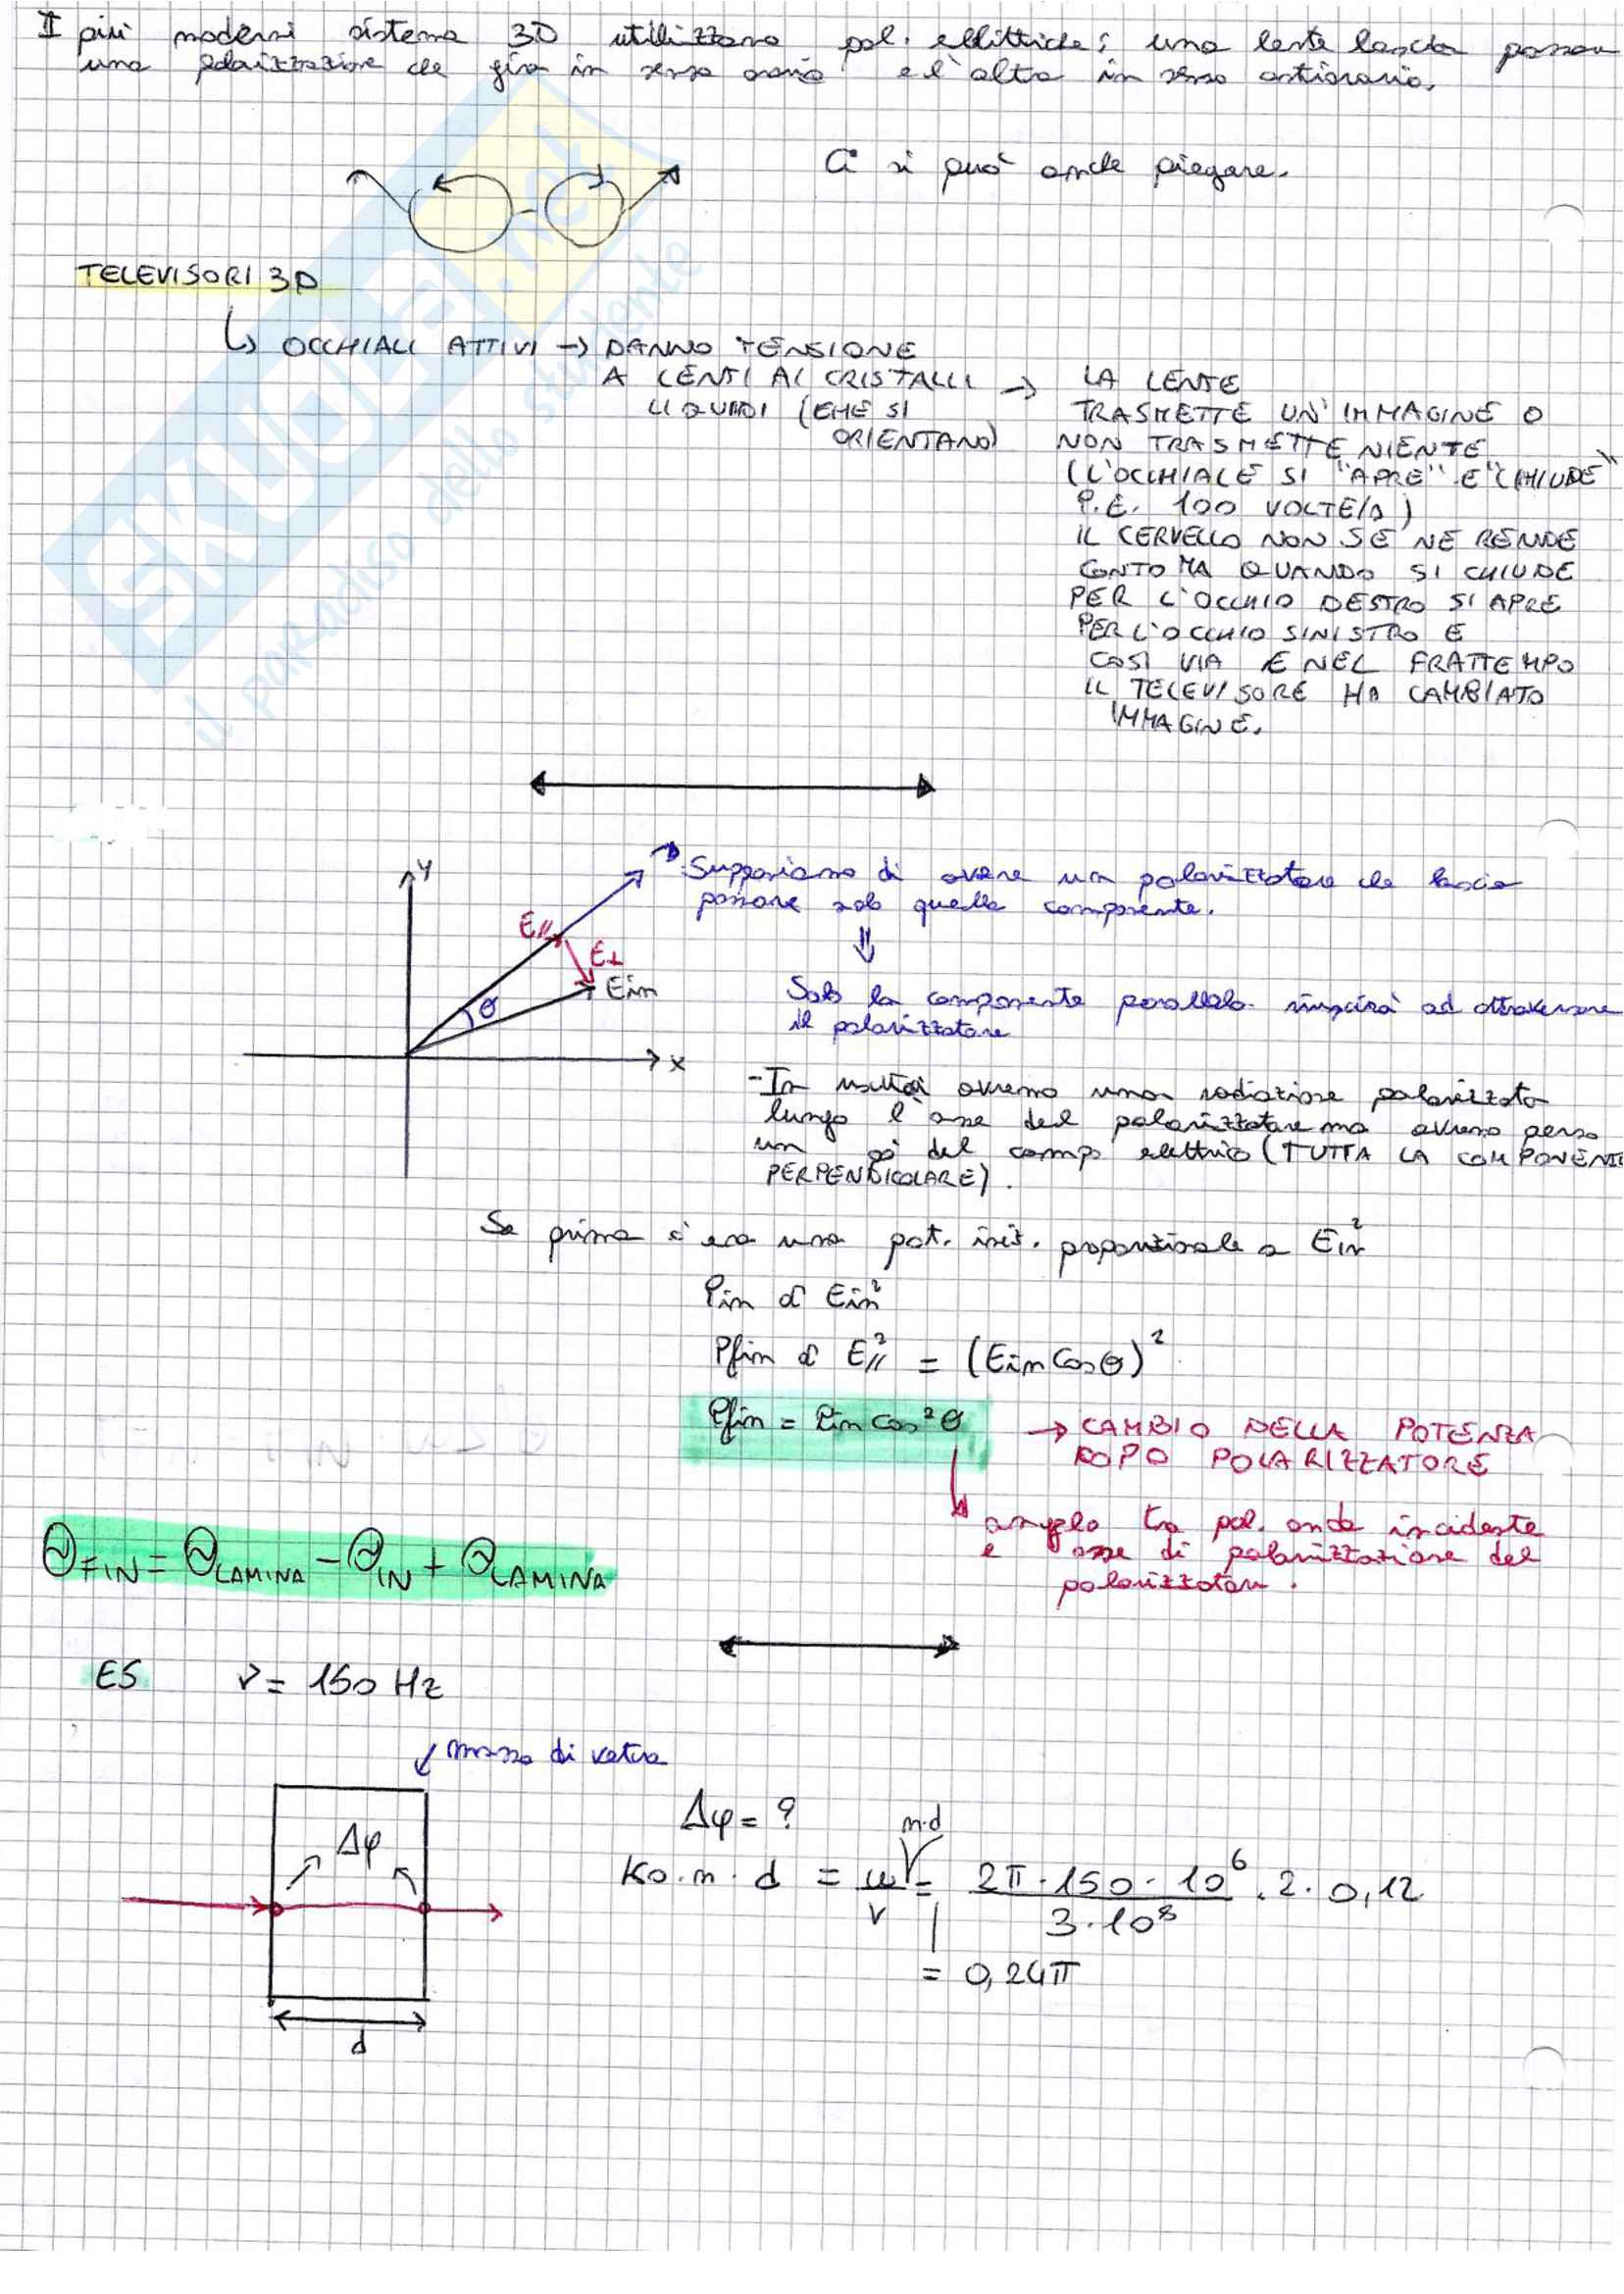 I più moderni sistema 3D utilizzano pol. ellittiche: una lente lascia passare
una polarizzazione che gira in senso orario e l'altra in senso antiorario.
Ci si può anche piegare.
TELEVISORI 3D
↳ OCCHIALI ATTIVI → DANNO TENSIONE
A LENTI AI CRISTALLI →
LIQUIDI (CHE SI
ORIENTANO)
LA LENTE
TRASMETTE UN'IMMAGINE O
NON TRASMETTE NIENTE
(L'OCCHIALE SI "APRE" E "CHIUDE"
P.E. 100 VOLTE/s)
IL CERVELLO NON SE NE RENDE
CONTO MA QUANDO SI CHIUDE
PER L'OCCHIO DESTRO SI APRE
PER L'OCCHIO SINISTRO E
COSÌ VIA E NEL FRATTEMPO
IL TELEVISORE HA CAMBIATO
IMMAGINE.
y
Supponiamo di avere un polarizzatore che lascia
passare solo quella componente.
⇓
E//
E⊥
Ein
θ
x
Solo la componente parallela riuscirà ad attraversare
il polarizzatore
- In uscita avremo una radiazione polarizzata
lungo l'asse del polarizzatore ma avremo perso
un pò del campo elettrico (TUTTA LA COMPONENTE
PERPENDICOLARE).
Se prima c'era una pot. iniz. proporzionale a Ein²
Pin α Ein²
Pfin α E//² = (Ein Cosθ)²
Pfin = Pin cos²θ → CAMBIO DELLA POTENZA
DOPO POLARIZZATORE
angolo tra pol. onda incidente
e asse di polarizzazione del
polarizzatore.
θFIN = θLAMINA - θIN + θLAMINA
ES ν = 150 Hz
mezzo di vetro
Δφ
Δφ = ?
n·d
K0·n·d = ω/v = 2π·150·10⁶/3·10⁸ · 2 · 0,12
= 0,24π
d
SKUOLA.net
il paradiso dello studente